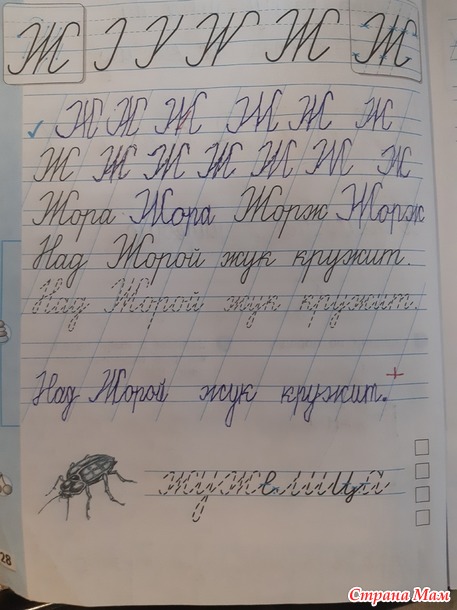 Ж Ж Ж Ж
Ж Ж Ж Ж Ж Ж
Ж Ж Ж Ж Ж Ж Ж
Жора Жора Жорж Жорж
Над Жорой жук кружит.
Над Жорой жук кружит.
Над Жорой жук кружит.+
жужелица
28
Страна Мам